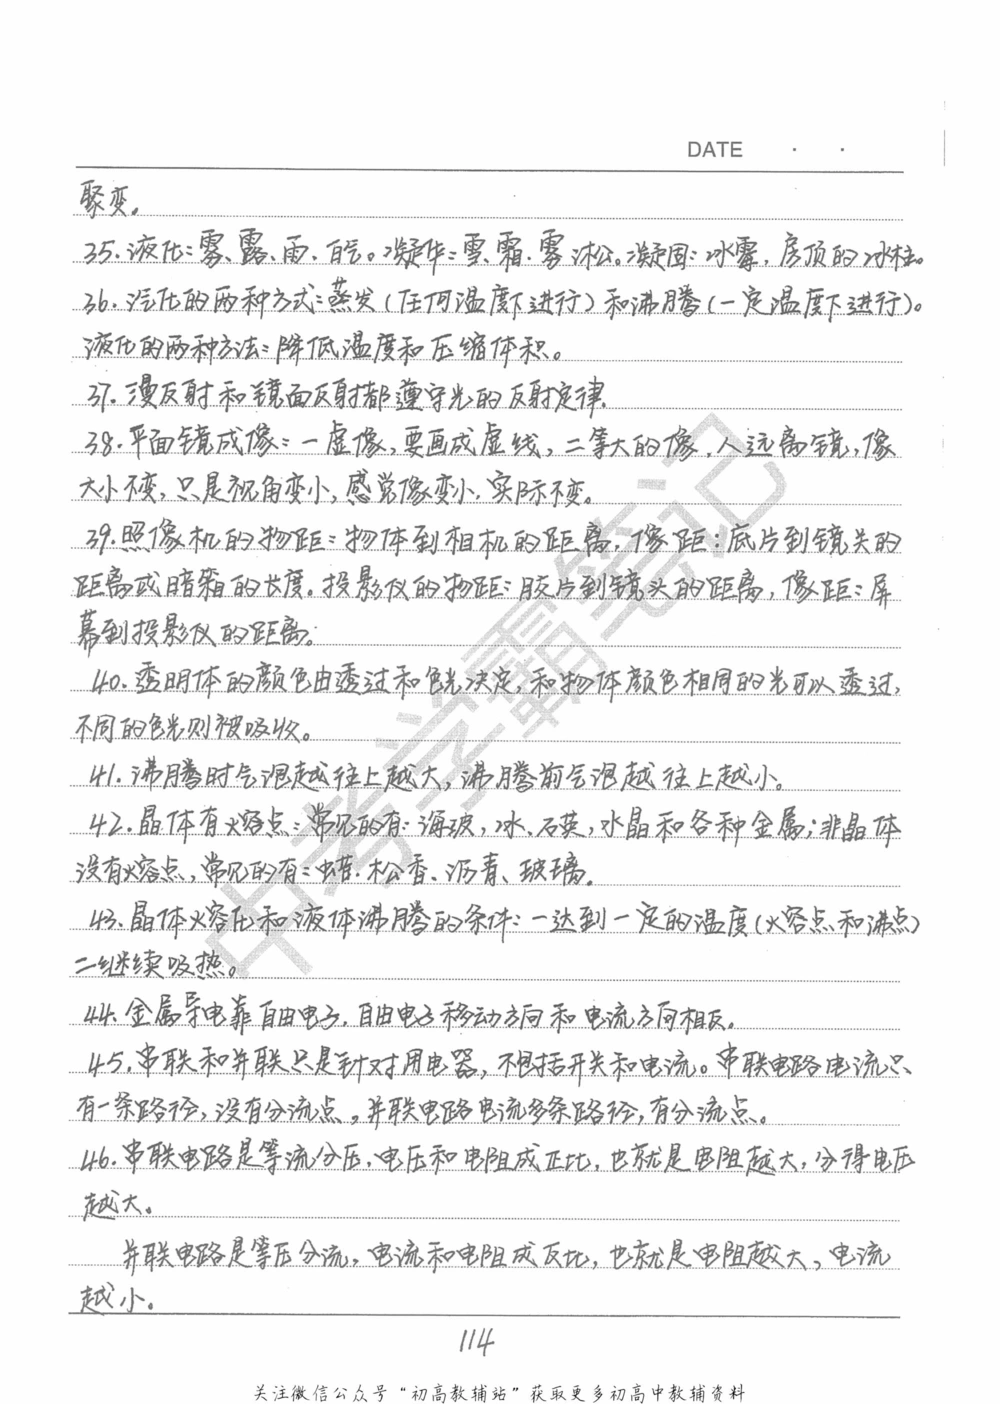 DATE · ·
聚变。
35.液化:雾、露、雨、白气。凝华:雪、霜、雾淞。凝固:冰雹,房顶的冰柱。
36.汽化的两种方式:蒸发(任何温度下进行)和沸腾(一定温度下进行)。
液化的两种方法:降低温度和压缩体积。
37.漫反射和镜面反射都遵守光的反射定律.
38.平面镜成像:一虚像,要画成虚线,二等大的像,人远离镜,像
大小不变,只是视角变小,感觉像变小,实际不变。
39.照像机的物距:物体到相机的距离,像距:底片到镜头的
距离或暗箱的长度。投影仪的物距:胶片到镜头的距离,像距:屏
幕到投影仪的距离。
40.透明体的颜色由透过和色光决定,和物体颜色相同的光可以透过,
不同的色光则被吸收。
41.沸腾时气泡越往上越大,沸腾前气泡越往上越小。
42.晶体有熔点:常见的有:海波,冰、石英,水晶和各种金属;非晶体
没有熔点,常见的有:蜡、松香、沥青、玻璃。
43.晶体熔化和液体沸腾的条件:一达到一定的温度(熔点和沸点)
二继续吸热。
44.金属导电靠自由电子,自由电子移动方向和电流方向相反。
45.串联和并联只是针对用电器,不包括开关和电流。串联电路电流只
有一条路径,没有分流点。并联电路电流多条路径,有分流点。
46.串联电路是等流分压,电压和电阻成正比,也就是电阻越大,分得电压
越大。
并联电路是等压分流,电流和电阻成反比,也就是电阻越大,电流
越小。
114
中考学霸笔记
关注微信公众号“初高教辅站”获取更多初高中教辅资料